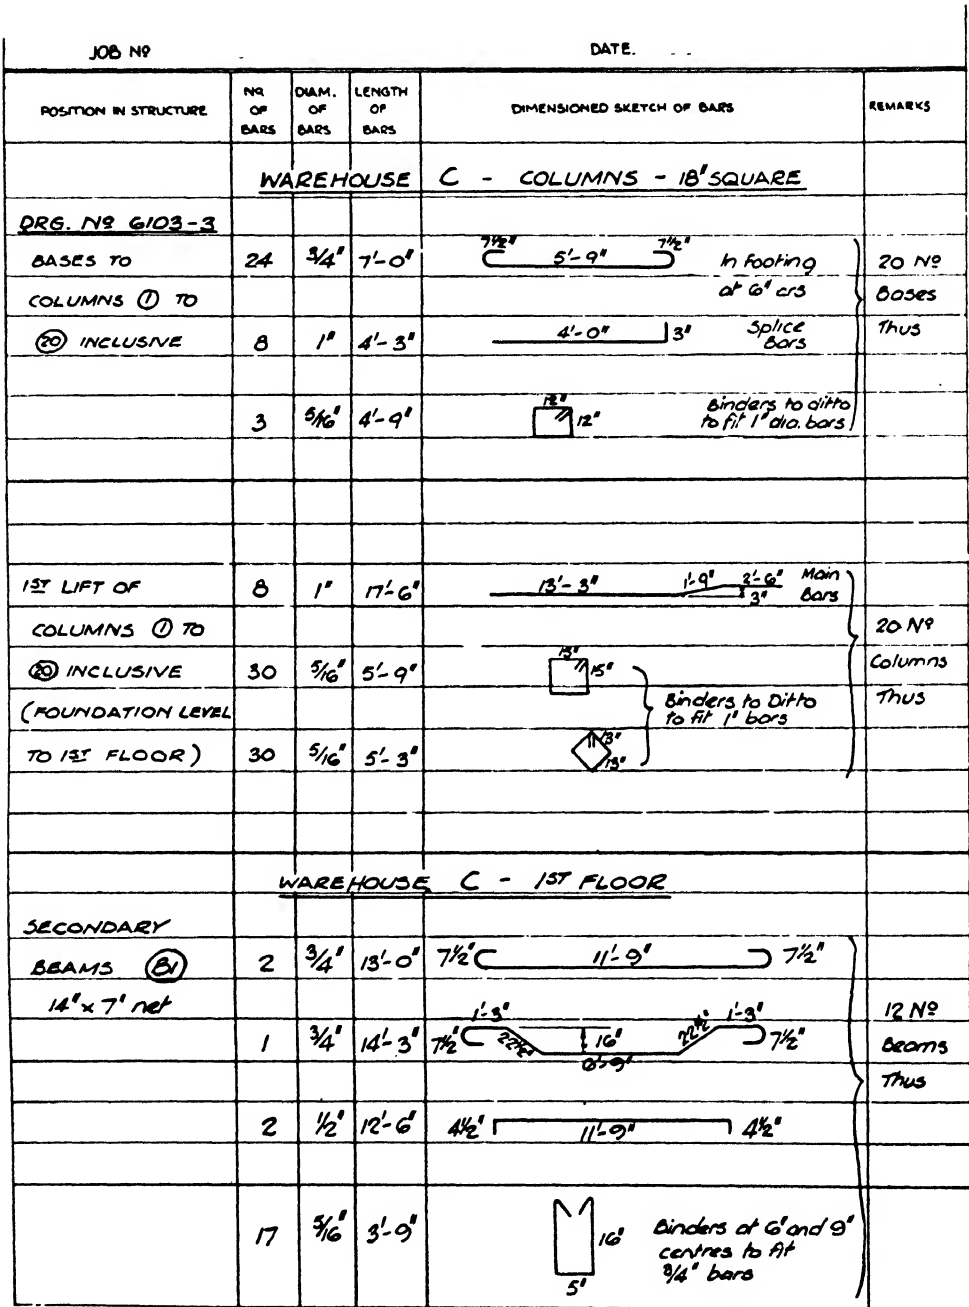 JOB Nº DATE.
POSITION IN STRUCTURE NO. OF BARS DIAM. OF BARS LENGTH OF BARS DIMENSIONED SKETCH OF BARS REMARKS
WAREHOUSE C - COLUMNS - 18" SQUARE
DRG. Nº 6103-3
BASES TO 24 3/4" 7'-0" 7½" 5'-9" 7½" In Footing 20 Nº
COLUMNS ① TO at 6" crs Bases
⑳ INCLUSIVE 8 1" 4'-3" 4'-0" 3" Splice Bars Thus
3 5/16" 4'-9" 12" 12" Binders to ditto
to fit 1" dia. bars
1ST LIFT OF 8 1" 17'-6" 13'-3" 1'-9" 2'-6" 3" Main Bars
COLUMNS ① TO 20 Nº
⑳ INCLUSIVE 30 5/16" 5'-9" 15" 15" Columns
(FOUNDATION LEVEL Binders to Ditto Thus
to fit 1" bars
TO 1ST FLOOR) 30 5/16" 5'-3" 13" 13"
WAREHOUSE C - 1ST FLOOR
SECONDARY
BEAMS B1 2 3/4" 13'-0" 7½" 11'-9" 7½"
14" x 7" net 12 Nº
1 3/4" 14'-3" 7½" 1'-3" 22½" 16" 22½" 1'-3" 7½" Beams
Thus
2 1/2" 12'-6" 4½" 11'-9" 4½"
17 5/16" 3'-9" 16" 5" Binders at 6" and 9"
centres to fit
3/4" bars